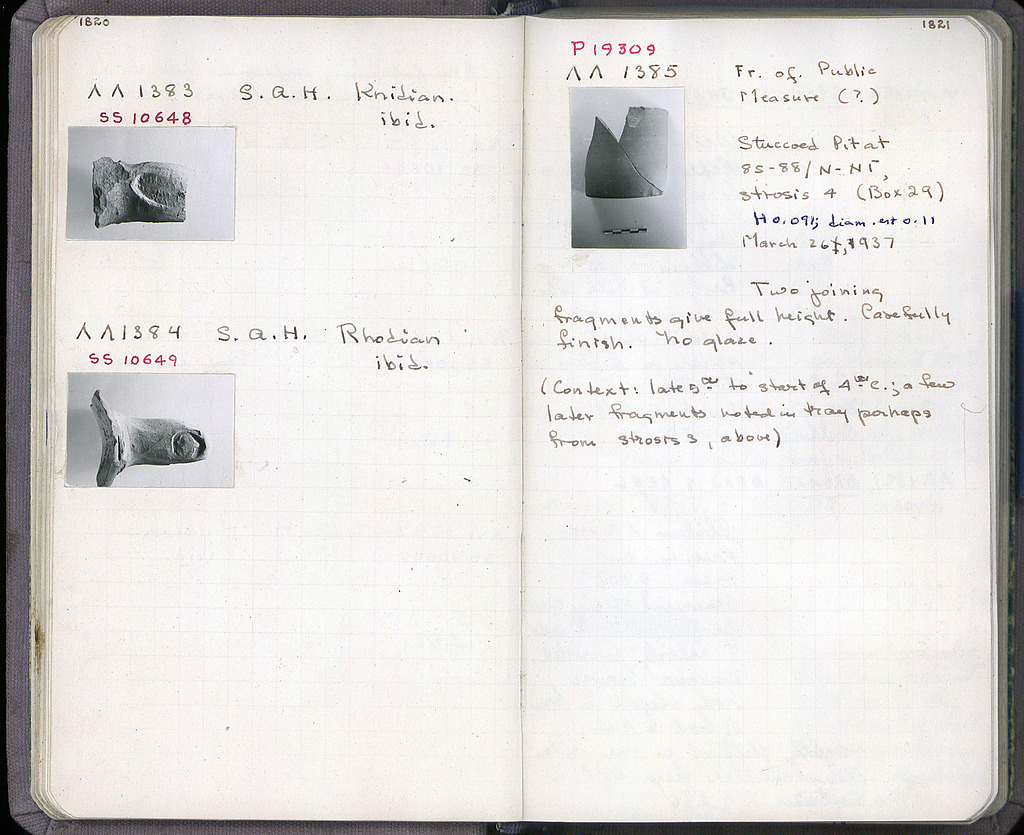 1820
ΛΛ 1383 S.A.H. Knidian.
SS 10648 ibid.
ΛΛ 1384 S.A.H. Rhodian
SS 10649 ibid.
1821
P 19309
ΛΛ 1385 Fr. of. Public
Measure (?)
Stuccoed Pit at
85-88/N-NΓ,
strosis 4 (Box 29)
H 0.091; diam. est 0.11
March 26, 1937
Two joining
fragments give full height. Carefully
finish. No glaze.
(Context: late 5th to start of 4th c.; a few
later fragments noted in tray perhaps
from strosis 3, above)